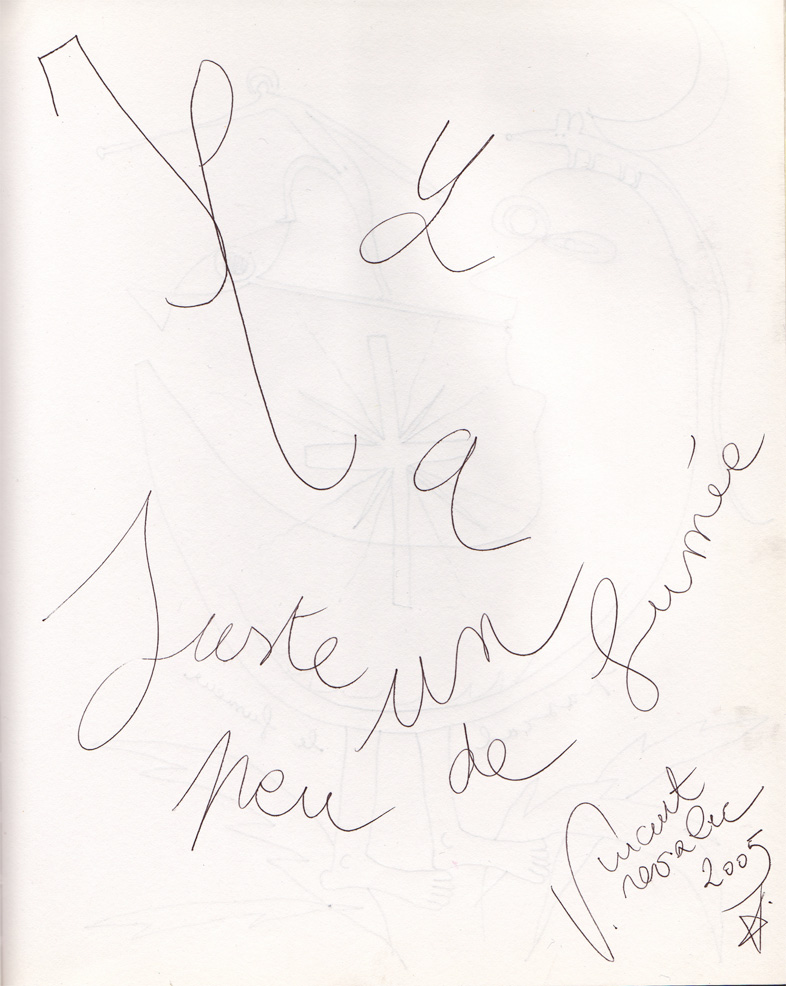 Il y
a
Juste un
peu de fumée
Vincent
2005